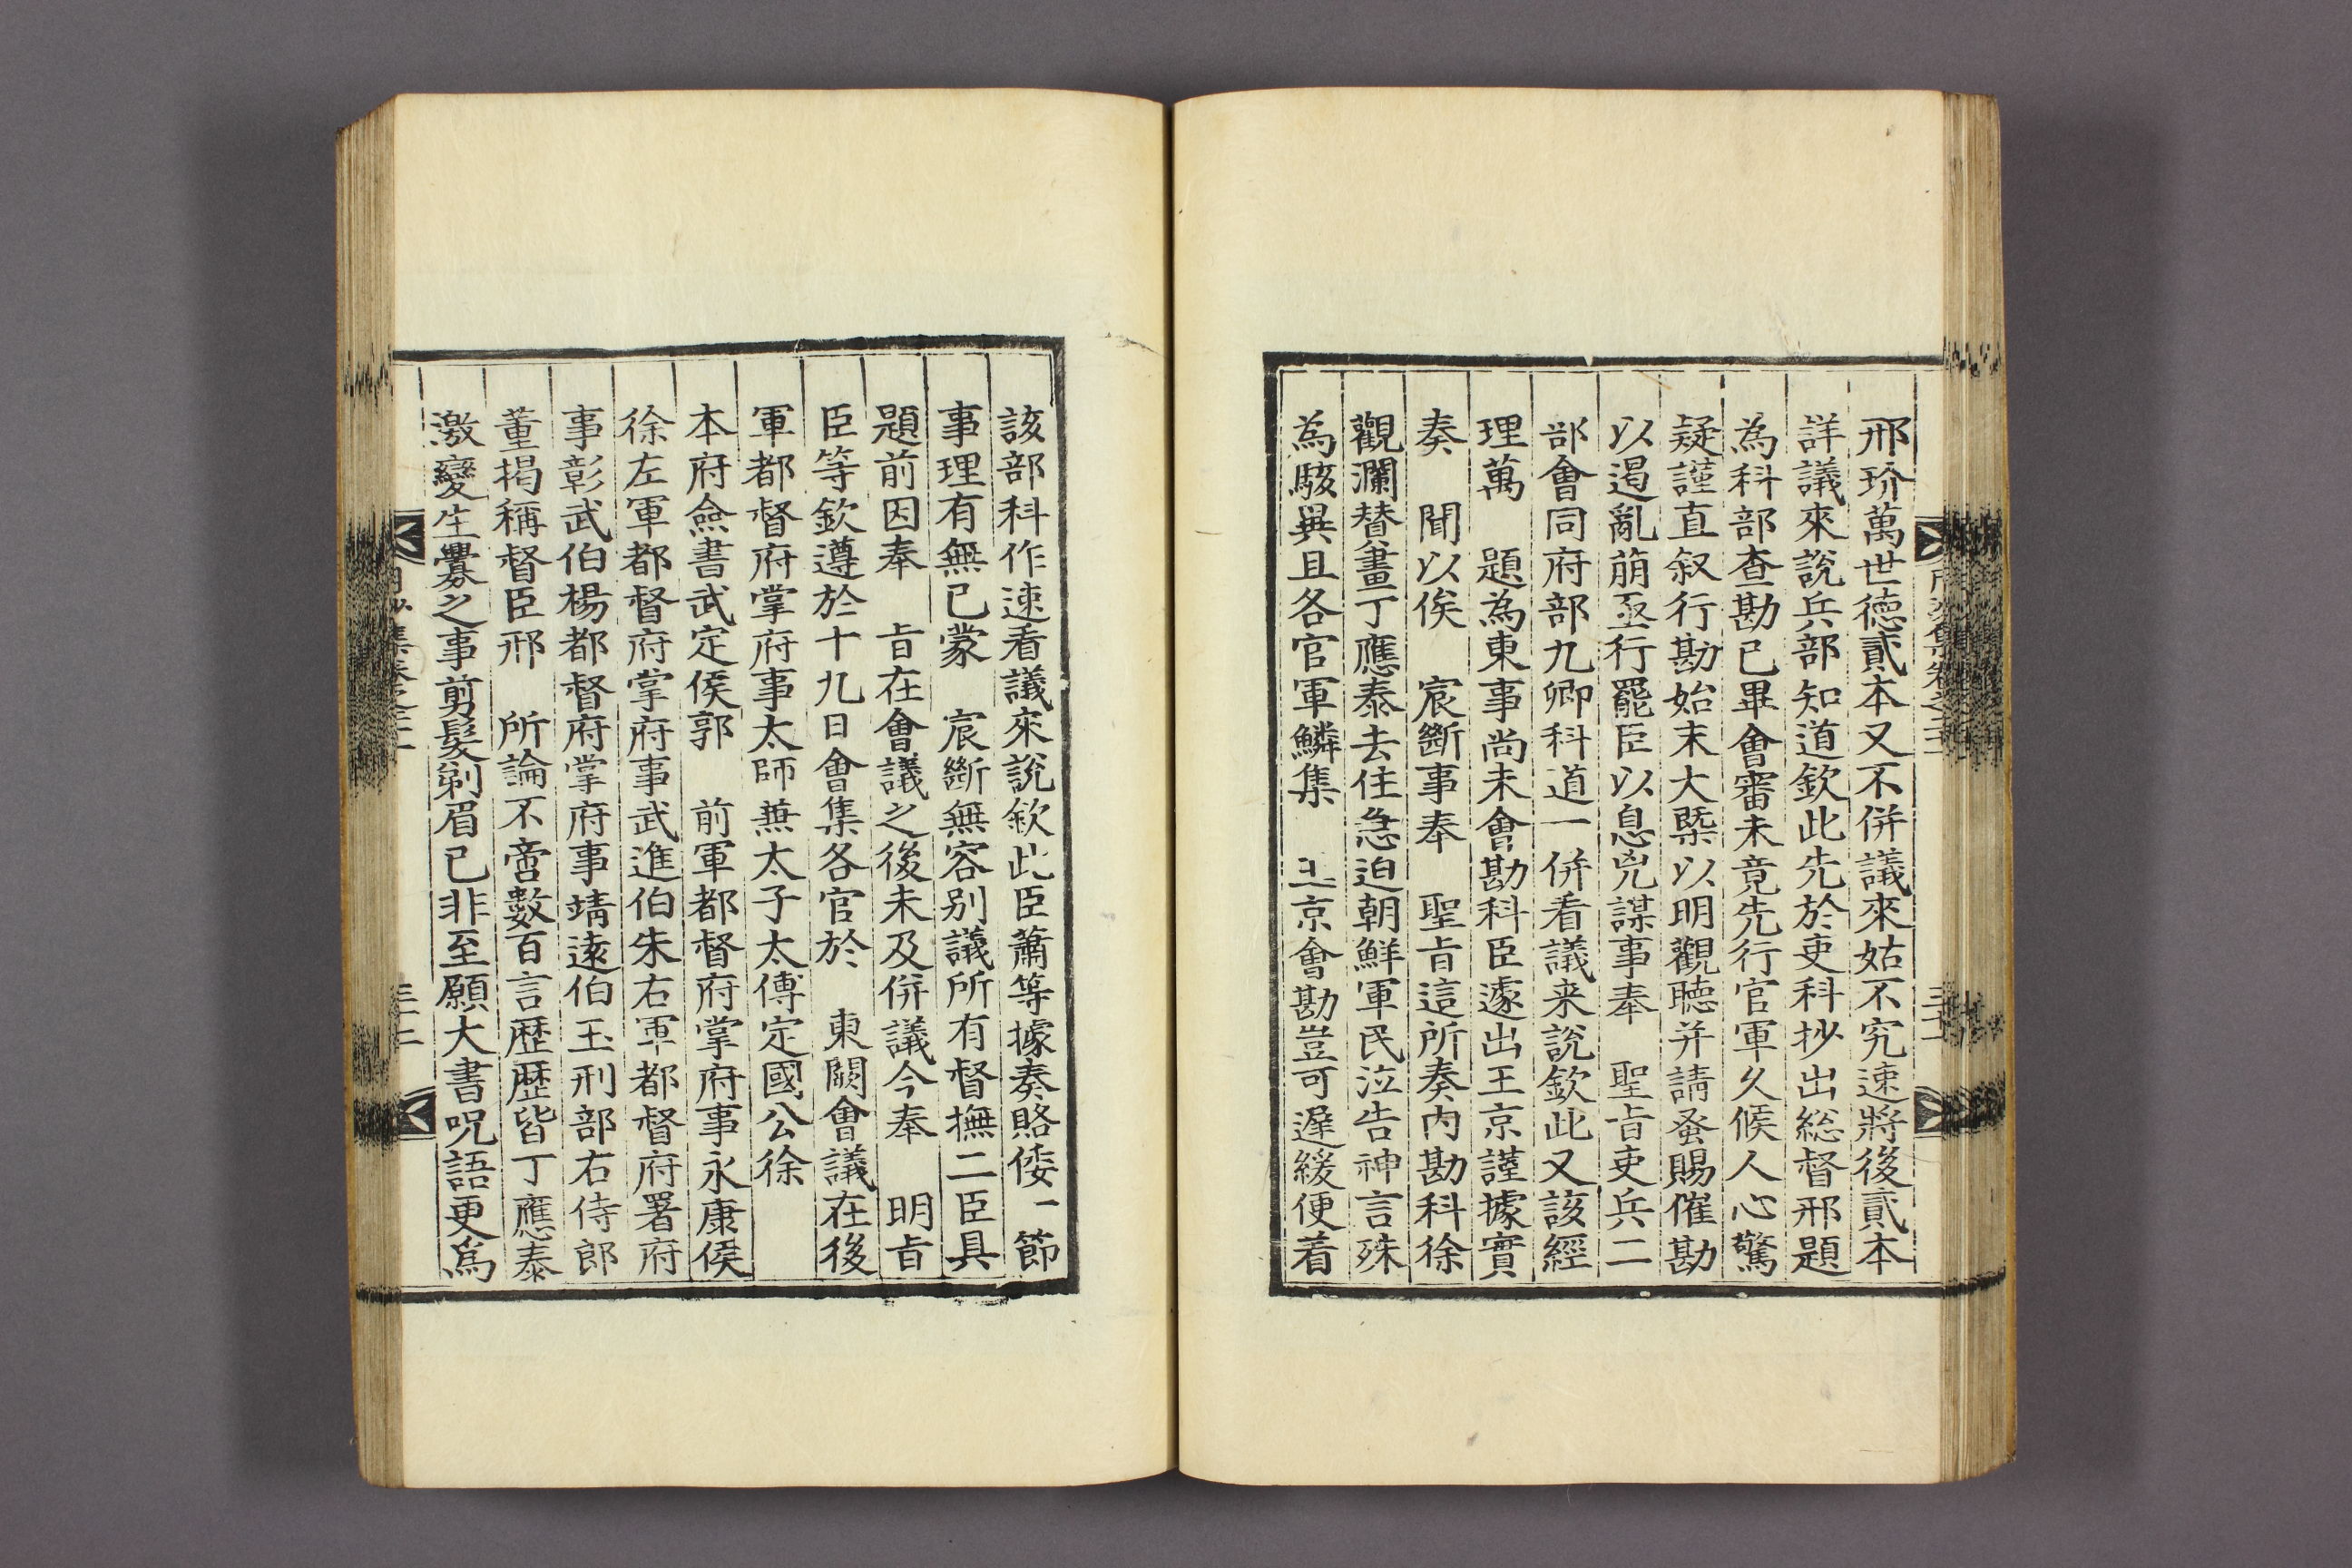 邢玠萬世德貳本又不併議來姑不究速將後貳本
詳議來說兵部知道欽此先於吏科抄出総督邢題
為科部查勘已畢會審未竟先行官軍久候人心驚
疑謹直叙行勘始末大槩以明觀聽并請蚤賜催勘
以遏亂萠亟行罷臣以息兇謀事奉　聖旨吏兵二
部會同府部九卿科道一併看議来說欽此又該經
理萬　題為東事尚未會勘科臣遽出王京謹據實
奏　聞以俟　宸斷事奉　聖旨這所奏內勘科徐
觀瀾替畫丁應泰去住急迫朝鮮軍民泣告神言殊
為駭異且各官軍鱗集　王京會勘豈可遲緩便着
該部科作速看議來說欽此臣蕭等據奏賂倭一節
事理有無已蒙　宸斷無容别議所有督撫二臣具
題前因奉　旨在會議之後未及併議今奉　明旨
臣等欽遵於十九日會集各官於　東闕會議在後
軍都督府掌府事太師兼太子太傅定國公徐
本府僉書武定侯郭　前軍都督府掌府事永康侯
徐左軍都督府掌府事武進伯朱右軍都督府署府
事彰武伯楊都督府掌府事靖遠伯王刑部右侍郎
董揭稱督臣邢　所論不啻數百言歷歷皆丁應泰
激變生釁之事剪髮剃眉已非至願大書呪語更為